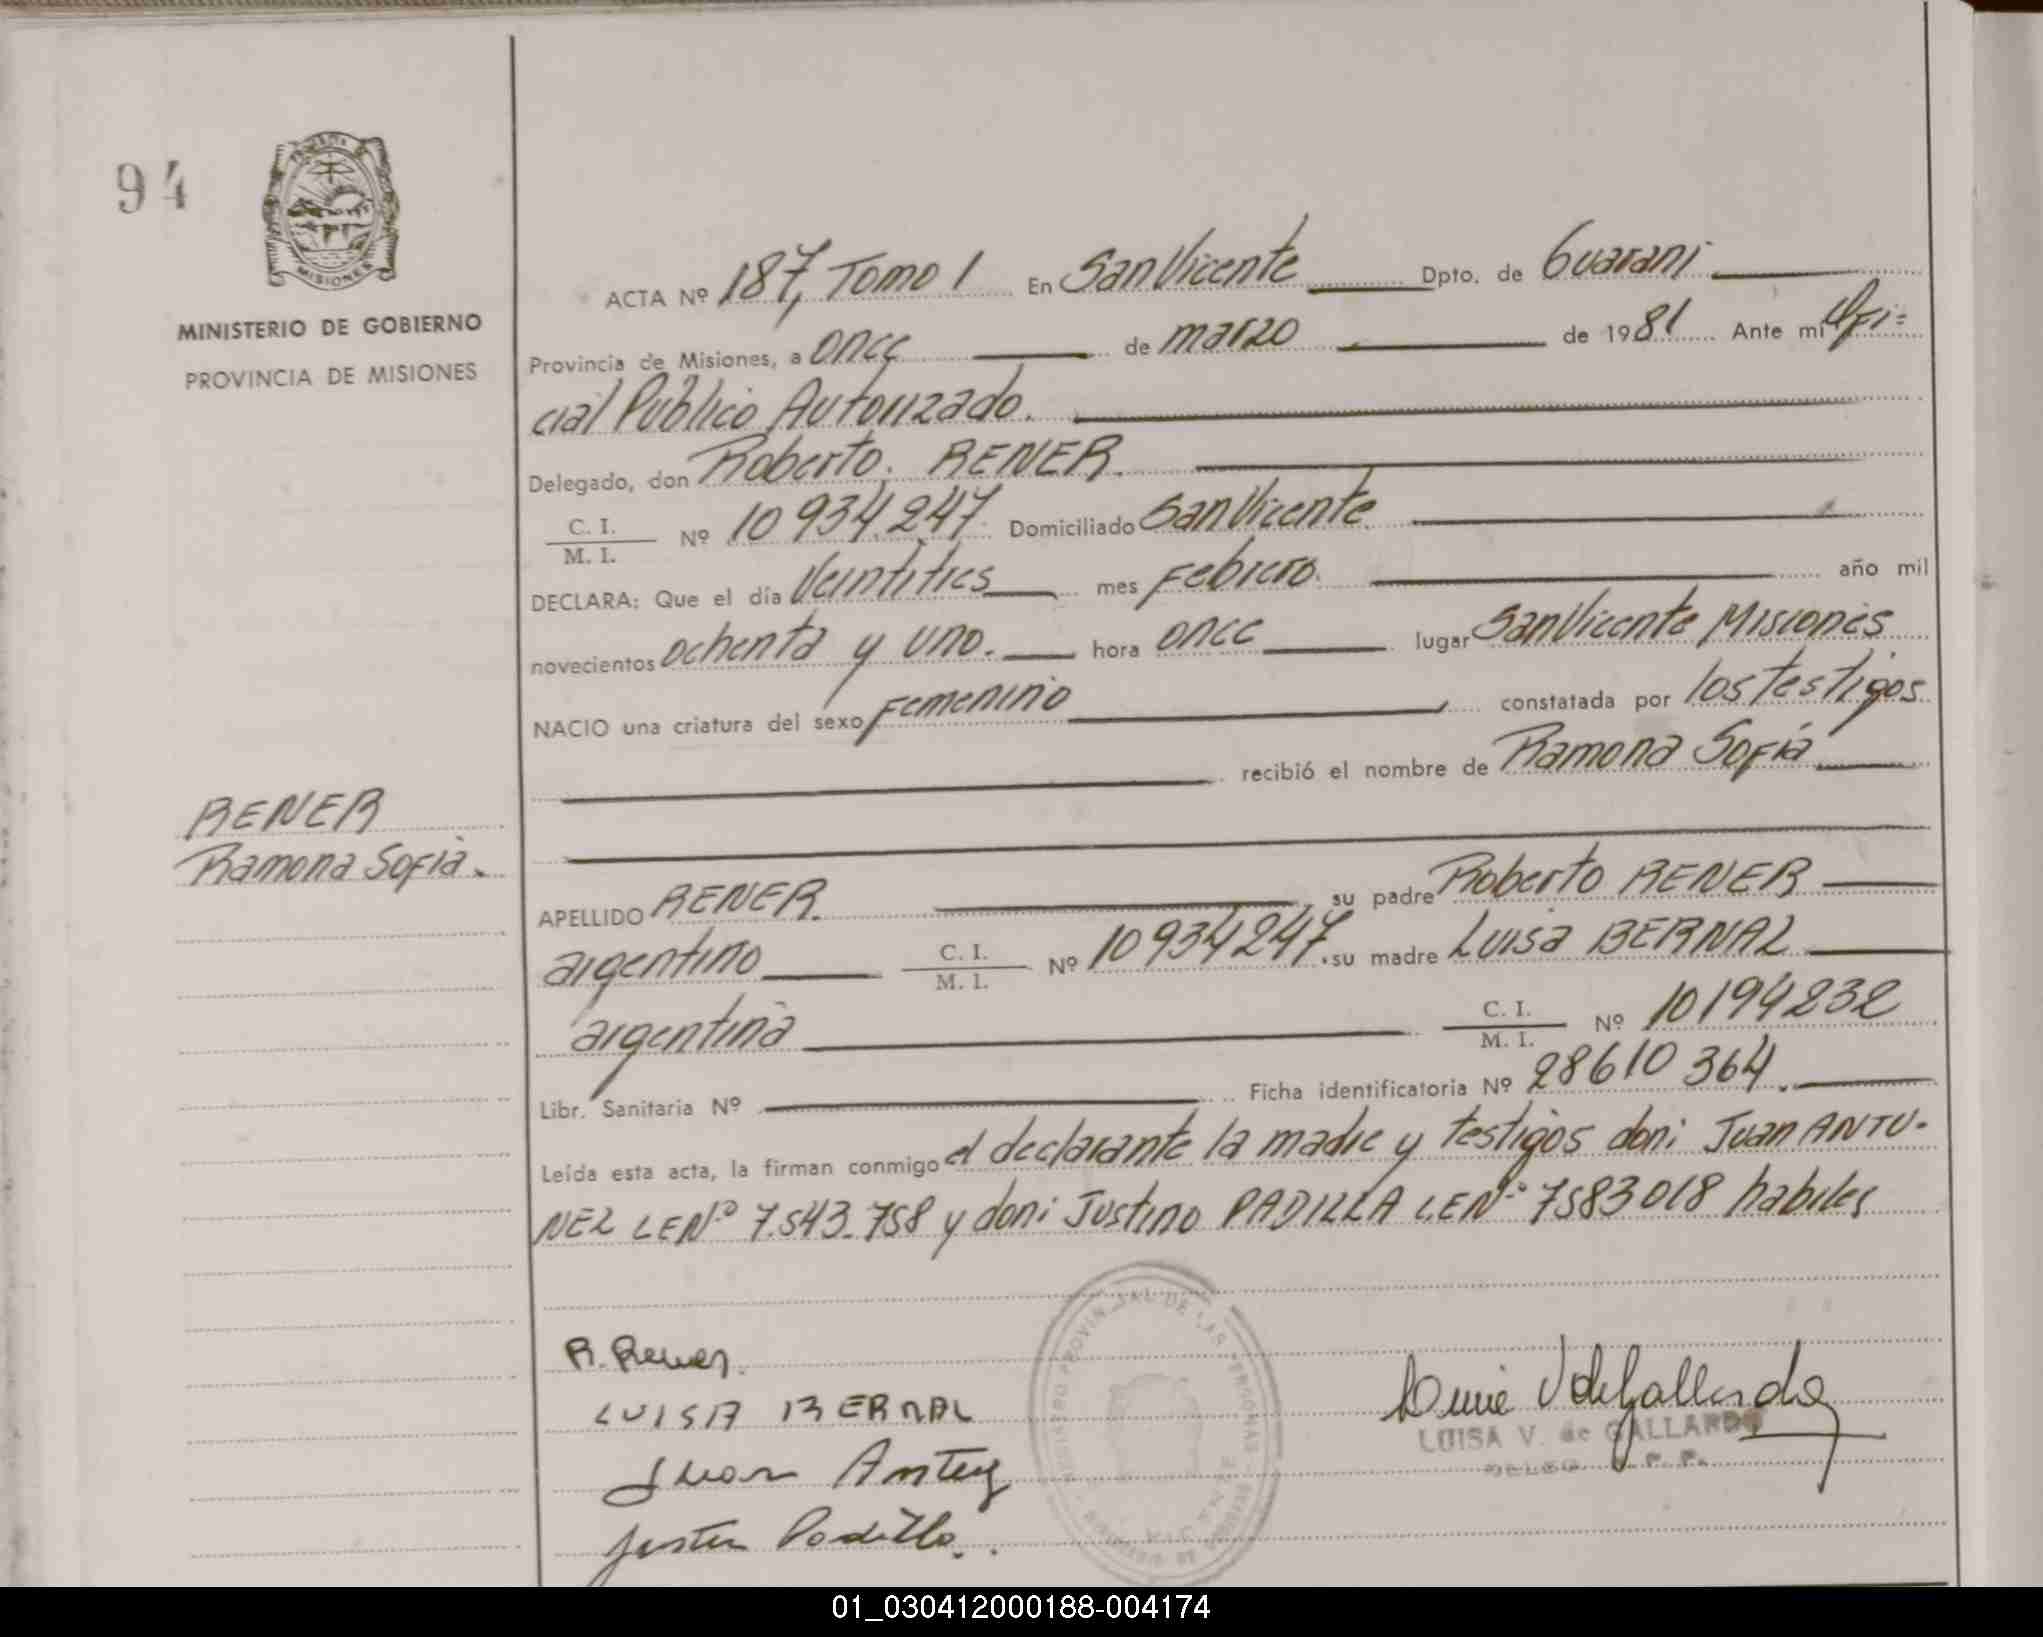 94
MISIONES
MINISTERIO DE GOBIERNO
PROVINCIA DE MISIONES
ACTA Nº 187, Tomo I En San Vicente Dpto. de Guarani
Provincia de Misiones, a once de marzo de 1981 Ante mi Ofi=
cial Público Autorizado.
Delegado, don Roberto. RENER.
C. I.
M. I. Nº 10 934.247 Domiciliado San Vicente
DECLARA: Que el día Veintitres mes Febrero. año mil
novecientos ochenta y uno. hora once lugar San Vicente Misiones
NACIO una criatura del sexo Femenino constatada por los testigos
recibió el nombre de Ramona Sofía
RENER
Ramona Sofía.
APELLIDO RENER. su padre Roberto RENER
argentino C. I.
M. I. Nº 10934247. su madre Luisa BERNAL
argentina C. I.
M. I. Nº 10194232
Libr. Sanitaria Nº Ficha identificatoria Nº 28610 364.
Leída esta acta, la firman conmigo el declarante la madre y testigos don: Juan ANTU-
NEZ LENº 7.543.758 y don: Justino PADILLA LENº 7583018 habiles
R. Rener.
LUISA BERNAL
Juan Antu
Padilla
LUISA V. de GALLARDO
REGISTRO PROVINCIAL DE LAS PERSONAS
VICENTE
01_030412000188-004174